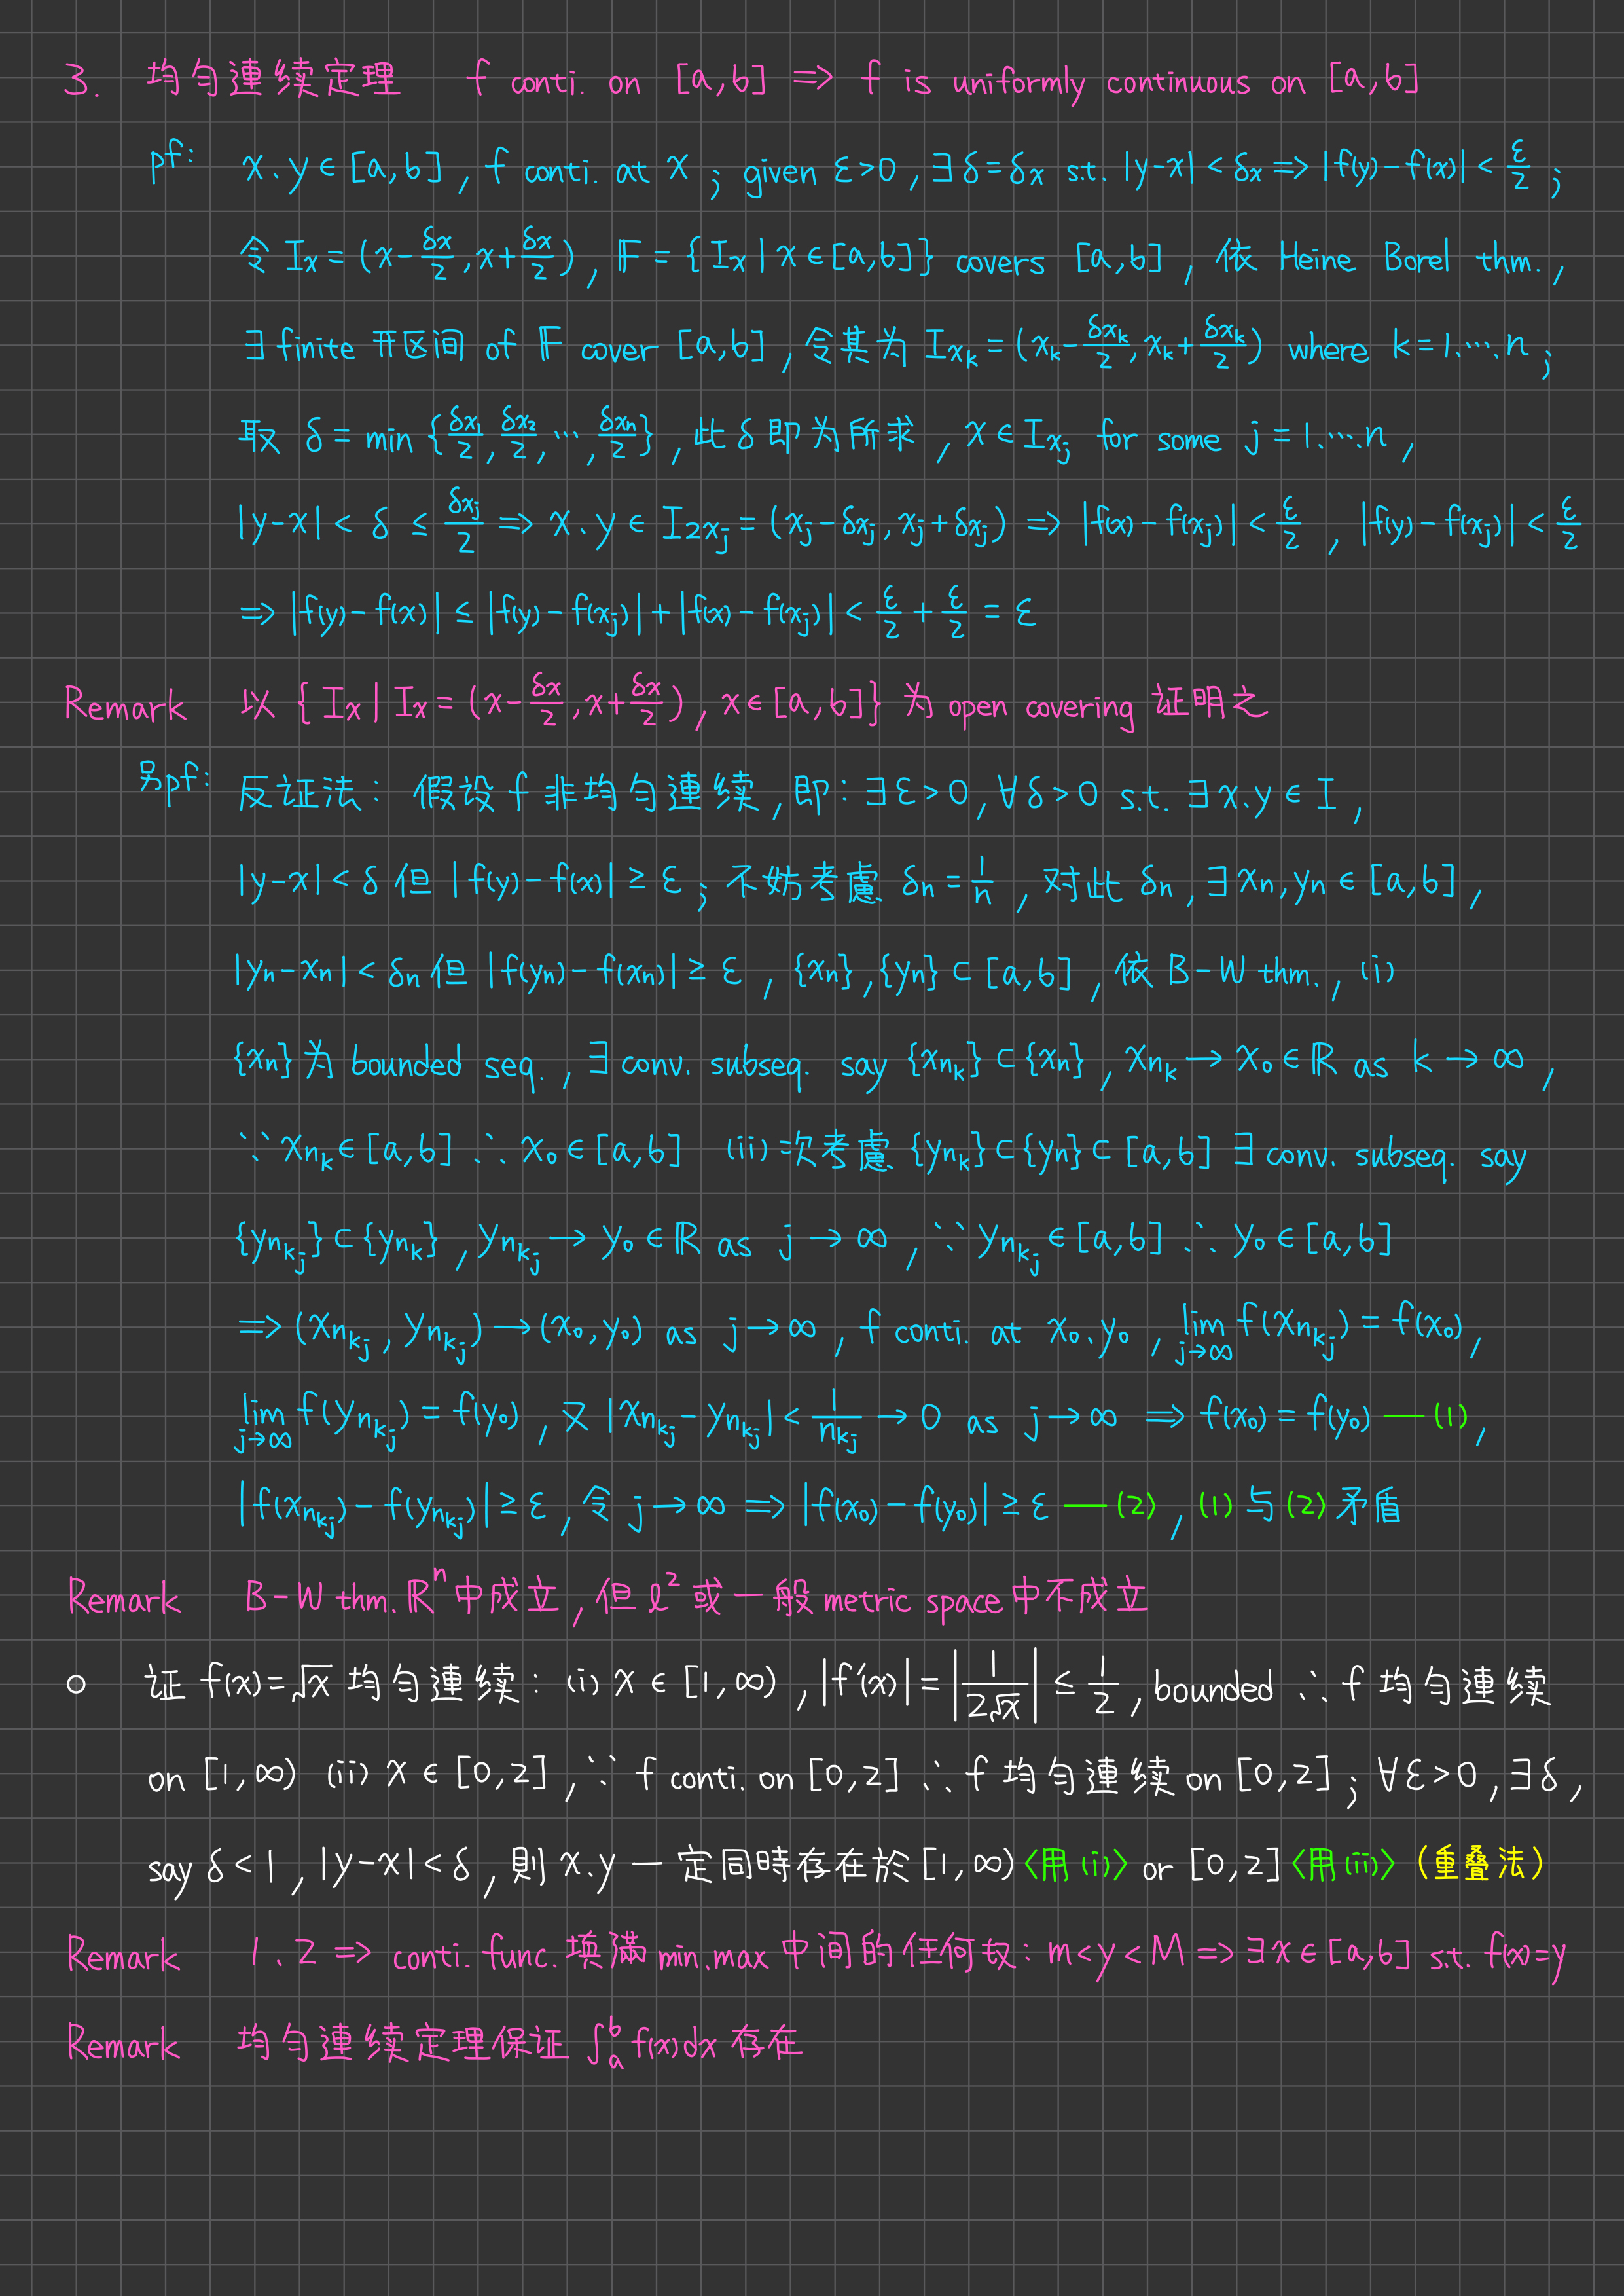 3. 均勻連续定理 f conti. on [a,b] ⇒ f is uniformly continuous on [a,b]
pf: x、y∈[a,b], f conti. at x; given ε>0, ∃δ=δx s.t. |y-x|<δx ⇒ |f(y)-f(x)|<ε/2;
令 Ix=(x-δx/2, x+δx/2), F={Ix|x∈[a,b]} covers [a,b], 依 Heine Borel thm.,
∃ finite 开区间 of F cover [a,b], 令其为 Ixk=(xk-δxk/2, xk+δxk/2) where k=1.….n;
取 δ=min{δx1/2, δx2/2, …, δxn/2}, 此 δ 即为所求, x∈Ixj for some j=1.….n,
|y-x|<δ≤δxj/2 ⇒ x、y∈I2xj=(xj-δxj, xj+δxj) ⇒ |f(x)-f(xj)|<ε/2, |f(y)-f(xj)|<ε/2
⇒ |f(y)-f(x)|≤|f(y)-f(xj)|+|f(x)-f(xj)|<ε/2+ε/2=ε
Remark 以 {Ix|Ix=(x-δx/2, x+δx/2), x∈[a,b]} 为 open covering 证明之
另pf: 反证法: 假设 f 非均勻連续, 即: ∃ε>0, ∀δ>0 s.t. ∃x、y∈I,
|y-x|<δ 但 |f(y)-f(x)|≥ε; 不妨考慮 δn=1/n, 对此 δn, ∃xn,yn∈[a,b],
|yn-xn|<δn 但 |f(yn)-f(xn)|≥ε, {xn},{yn}⊂[a,b], 依 B-W thm., (i)
{xn} 为 bounded seq., ∃ conv. subseq. say {xnk}⊂{xn}, xnk→x0∈ℝ as k→∞,
∵ xnk∈[a,b] ∴ x0∈[a,b] (ii) 次考慮 {ynk}⊂{yn}⊂[a,b] ∃ conv. subseq. say
{ynkj}⊂{ynk}, ynkj→y0∈ℝ as j→∞, ∵ ynkj∈[a,b] ∴ y0∈[a,b]
⇒ (xnkj, ynkj)→(x0,y0) as j→∞, f conti. at x0、y0, lim j→∞ f(xnkj)=f(x0),
lim j→∞ f(ynkj)=f(y0), 又 |xnkj-ynkj|<1/nkj→0 as j→∞ ⇒ f(x0)=f(y0) —(1),
|f(xnkj)-f(ynkj)|≥ε, 令 j→∞ ⇒ |f(x0)-f(y0)|≥ε —(2), (1) 与 (2) 矛盾
Remark B-W thm. ℝⁿ 中成立, 但 ℓ² 或一般 metric space 中不成立
○ 证 f(x)=√x 均勻連续: (i) x∈[1,∞), |f'(x)|=|1/2√x|≤1/2, bounded ∴ f 均勻連续
on [1,∞) (ii) x∈[0,2], ∵ f conti. on [0,2] ∴ f 均勻連续 on [0,2]; ∀ε>0, ∃δ,
say δ<1, |y-x|<δ, 則 x、y 一定同時存在於 [1,∞)〈用(i)〉or [0,2]〈用(ii)〉(重叠法)
Remark 1、2 ⇒ conti. func. 填滿 min.max 中间的任何数: m<y<M ⇒ ∃x∈[a,b] s.t. f(x)=y
Remark 均勻連续定理保证 ∫ₐᵇ f(x)dx 存在